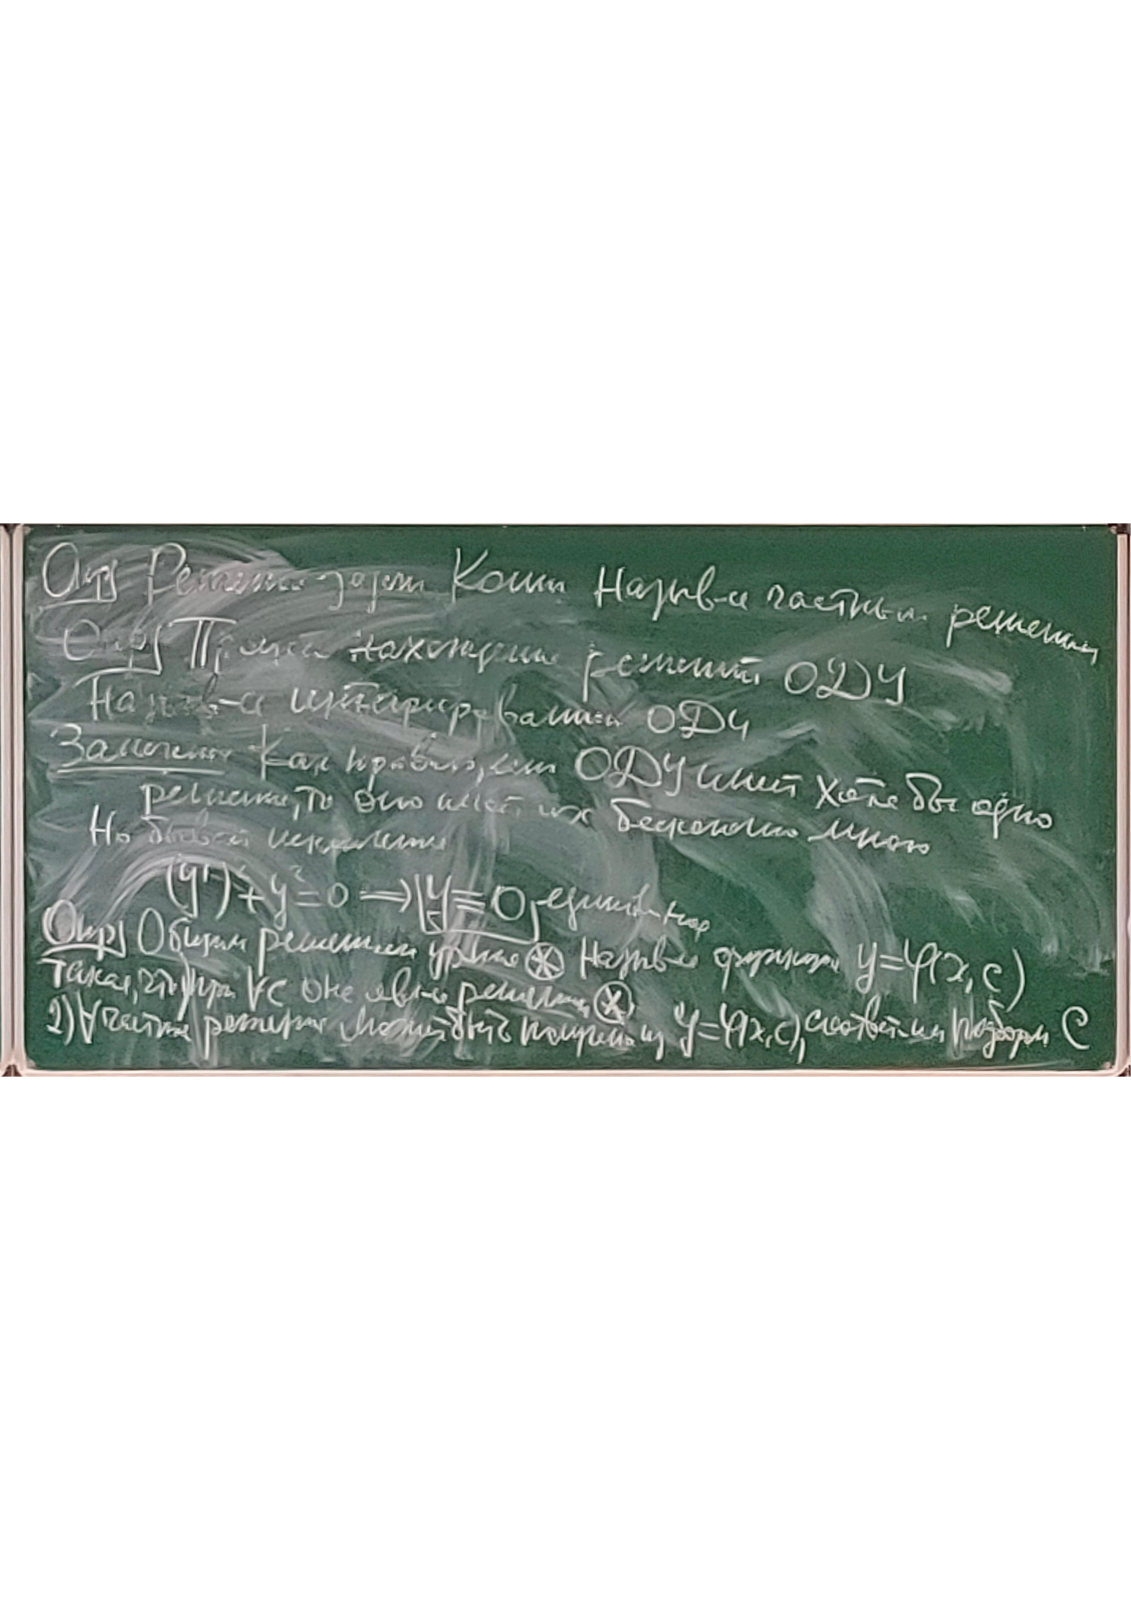 Опр Решение задачи Коши назыв-ся частным решением
Опр Процесс нахождения решений ОДУ
Назыв-ся интегрированием ОДУ
Замечание Как правило, если ОДУ имеет хотя бы одно
решение, то оно имеет их бесконечно много
Но бывают исключения
(y')²+y²=0 ⇒ y≡0, единств-ное
Опр Общим решением ур-ния ⊛ назыв-ся функция y=φ(x,c)
такая, что 1) при ∀c она явл-ся решением ⊛
2) ∀ частное решение может быть получено из y=φ(x,c), соответ-им подбором C